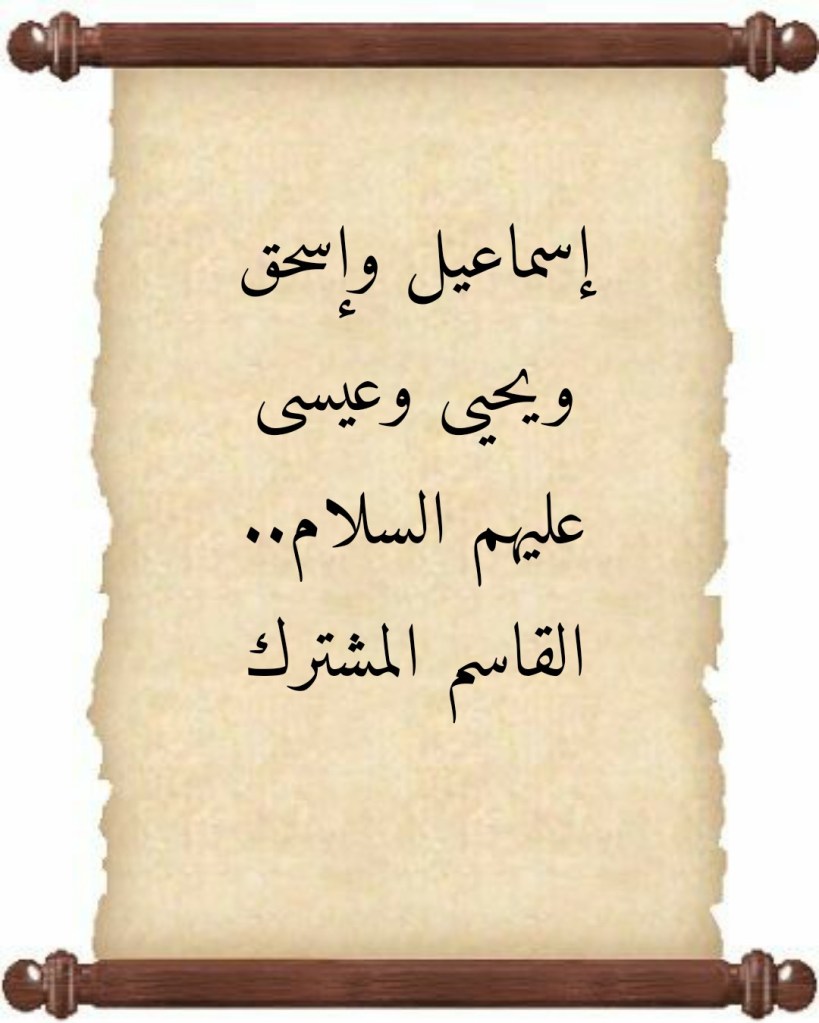 إسماعيل وإسحق
ويحيي وعيسى
عليهم السلام..
القاسم المشترك